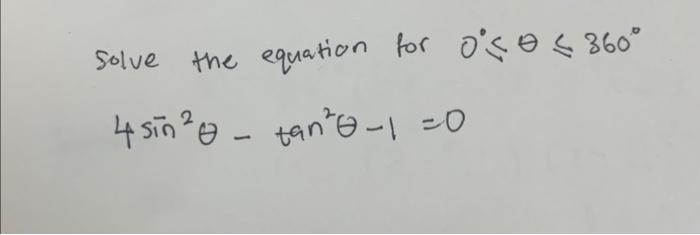 Solve the equation for 0°⩽ θ ⩽ 360°
4 sin²θ - tan²θ - 1 = 0